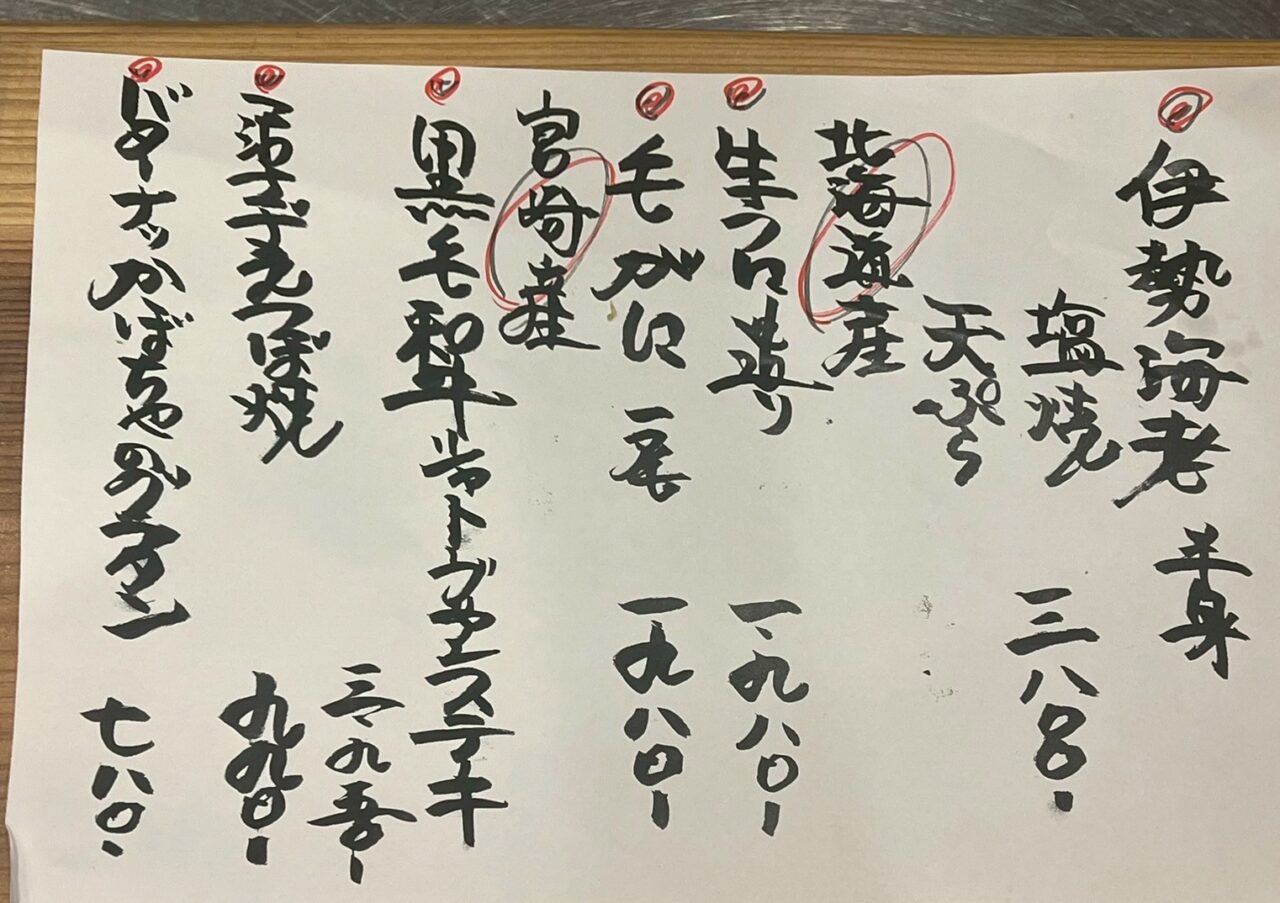 伊勢海老 半身
塩焼
天ぷら
三八〇-
北海道産
生うに造り
一、九八〇-
毛がに 一尾
一九八〇-
宮崎産
黒毛和牛 シャトーブリアンステーキ
三、九
活サザエつぼ焼
九九〇-
バターナッツかぼちゃのグラタン
七八〇-